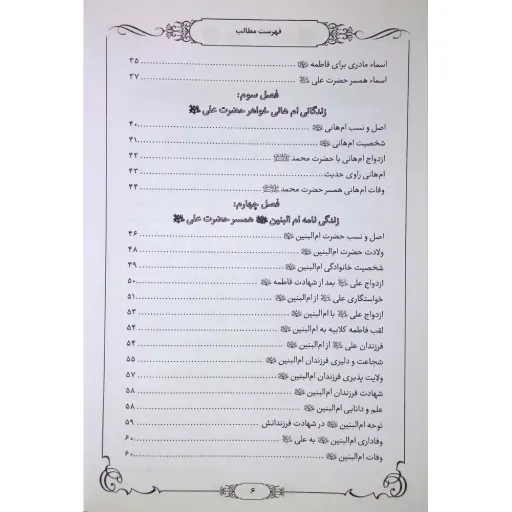 فهرست مطالب
اسماء مادری برای فاطمه ........ ۳۵
اسماء همسر حضرت علی ........ ۳۷
فصل سوم:
زندگانی ام هانی خواهر حضرت علی
اصل و نسب ام‌هانی ........ ۴۰
شخصیت ام‌هانی ........ ۴۱
ازدواج ام‌هانی با حضرت محمد ........ ۴۲
ام‌هانی راوی حدیث ........ ۴۳
وفات ام‌هانی همسر حضرت محمد ........ ۴۴
فصل چهارم:
زندگی نامه ام البنین همسر حضرت علی
اصل و نسب حضرت ام‌البنین ........ ۴۶
ولادت حضرت ام‌البنین ........ ۴۸
شخصیت خانوادگی ام‌البنین ........ ۴۹
ازدواج علی بعد از شهادت فاطمه ........ ۵۰
خواستگاری علی از ام‌البنین ........ ۵۱
ازدواج علی با ام‌البنین ........ ۵۳
لقب فاطمه کلابیه به ام‌البنین ........ ۵۴
فرزندان علی از ام‌البنین ........ ۵۴
شجاعت و دلیری فرزندان ام‌البنین ........ ۵۵
ولایت پذیری فرزندان ام‌البنین ........ ۵۷
شهادت فرزندان ام‌البنین ........ ۵۸
علم و دانایی ام‌البنین ........ ۵۸
نوحه ام‌البنین در شهادت فرزندانش ........ ۵۹
وفاداری ام‌البنین به علی ........ ۶۰
وفات ام‌البنین ........ ۶۰
۶